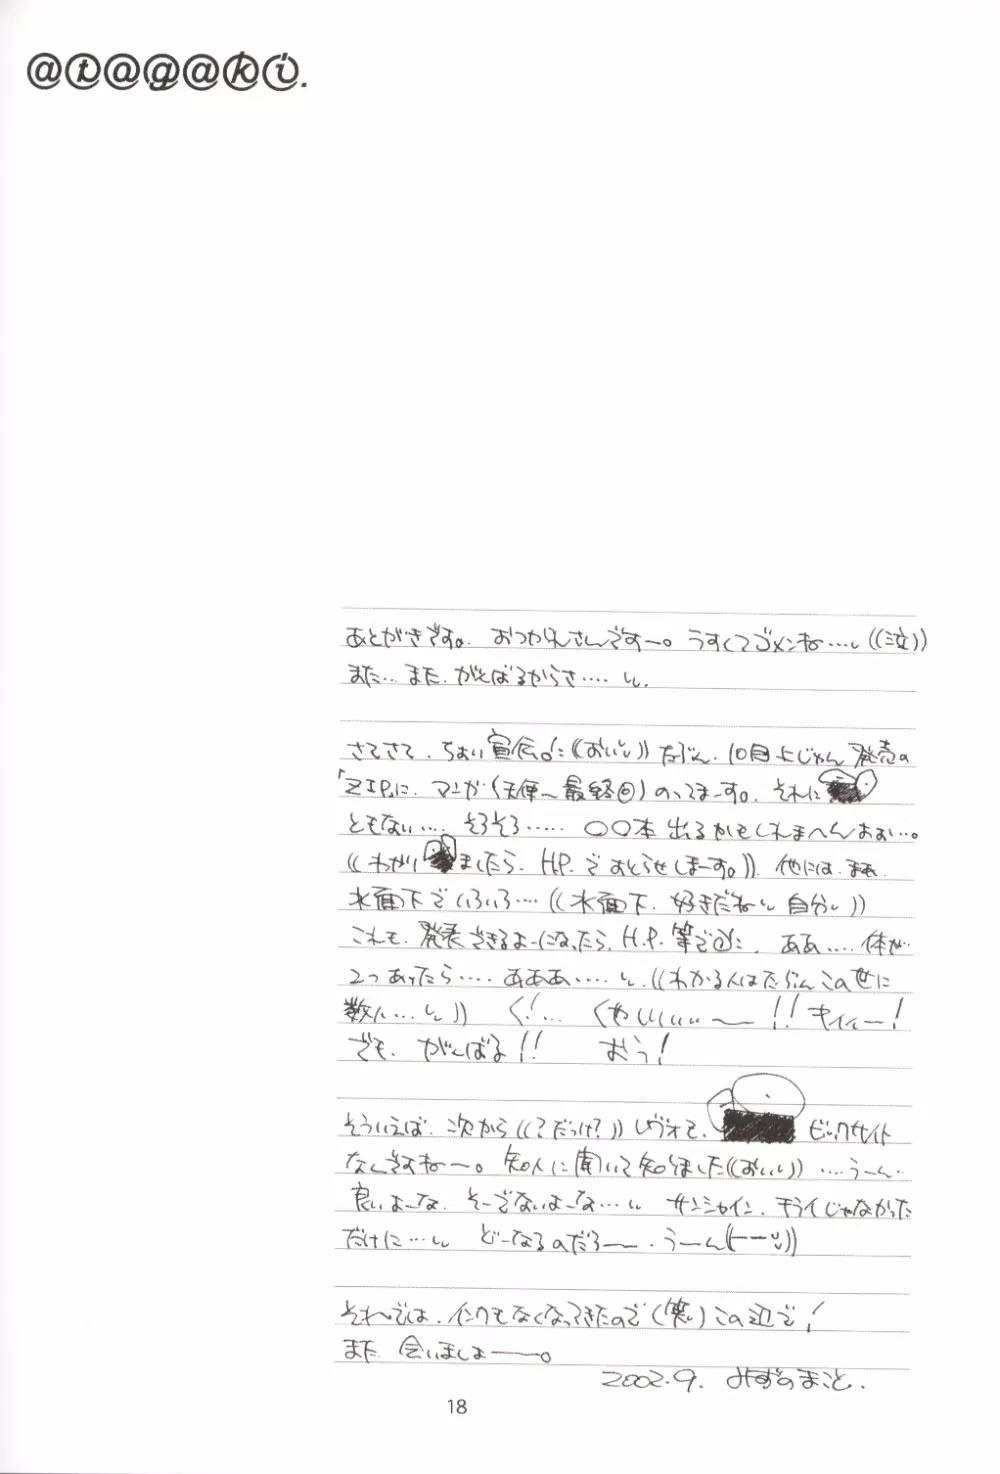 @t@g@ki.
あとがきです。おつかれさんですー。うすくてゴメンね….((泣))
また… また、がんばるからさ….
さてさて、ちょい宣伝。((おいし)) たぶん、10月上じゅん発売の
「ZIP」に、マンガ(天使〜最終回)のってまーす。それに
ともない…. そろそろ…… 〇〇本出るかもしれまへんおぉ…。
((わかりましたら、H.P.でおしらせしまーす。)) 他には、まぁ
水面下でいろいろ…((水面下、好きだねぃ自分))
これも、発表できるよーになったら、H.P.等で に、ああ…. 体が
2つあったら…. あああ…..((わかる人はたぶんこの世に
数人….)) く!… くやしぃぃぃー!! キィィー!
でも、がんばる!! おう!
そういえば、次から((?だっけ?))レヴォて、ビックサイト
なんですねー。知人に聞いて知りました((おいし)) ….うーん..
良いよーな、そーでないよーな…. サンシャイン、キライじゃなかった
だけに…. どーなるのだろー. うーん
それでは、インクもなくなってきたので(笑)この辺で!
また、会いましょー。
2002.9. みずのまこと.
18